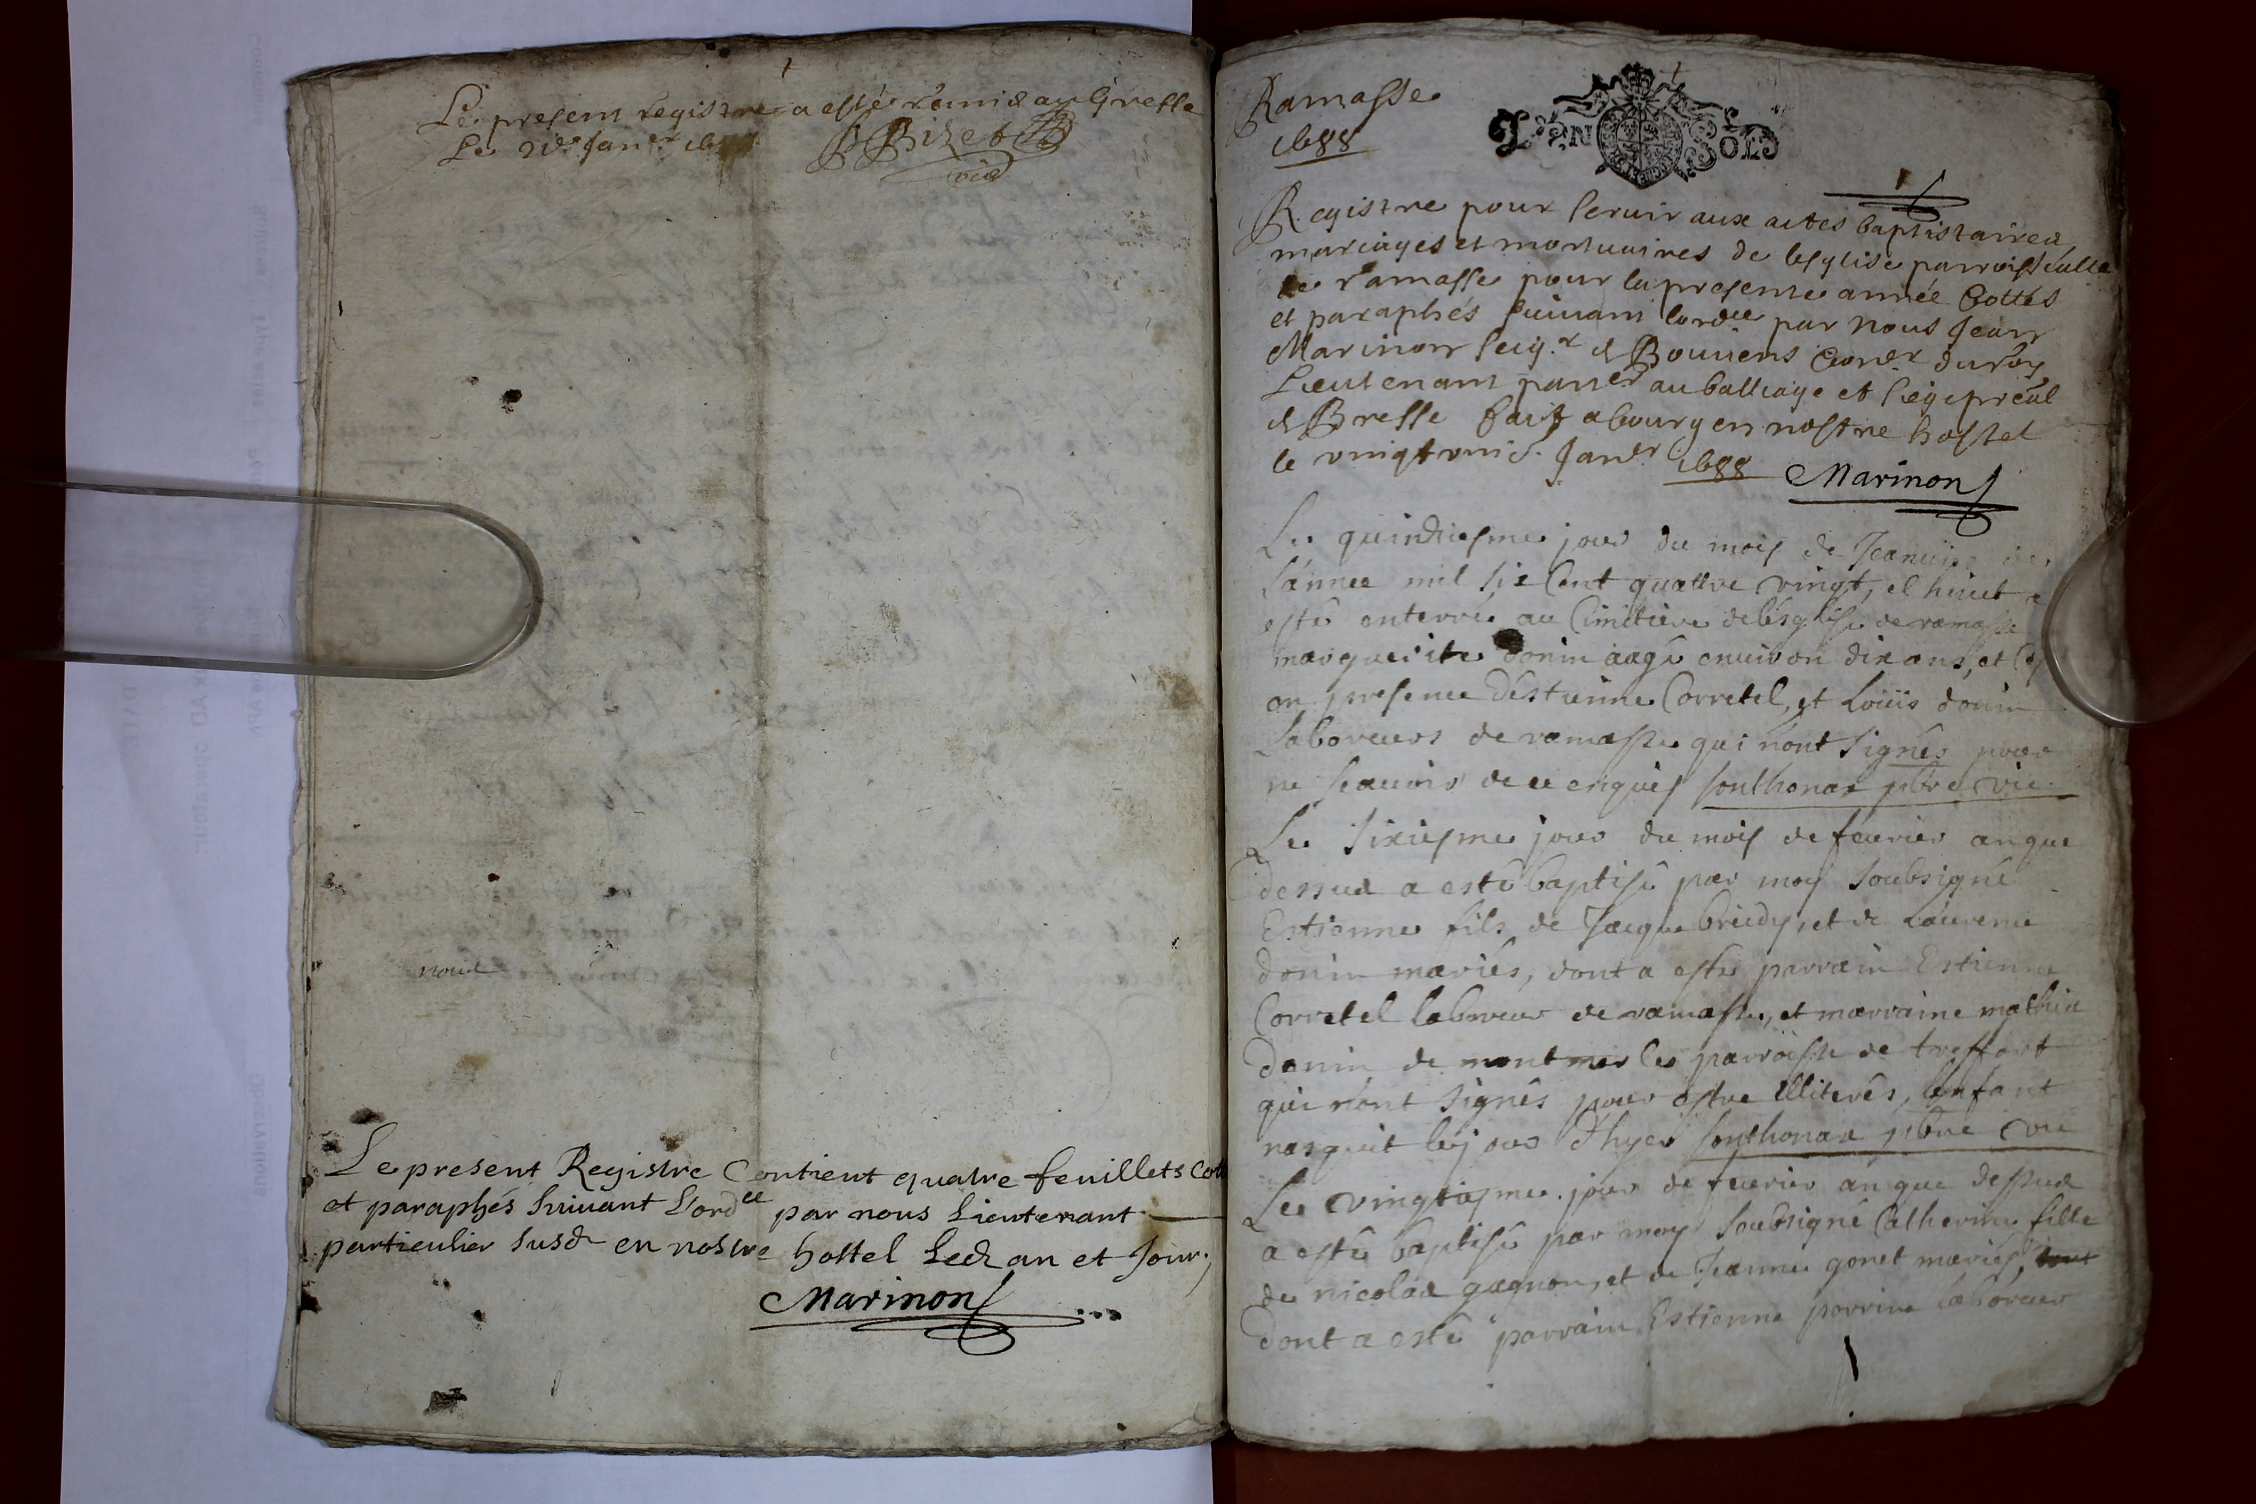 Le present registre a esté remis au Greffe
Le 21e Janer
BBizet
vic
nous
Le present Registre Contient quatre feuillets Cot
et paraphés suivant L'ordce par nous Lieutenant
particulier susd en nostre hostel Led an et Jour;
Marinon
Ramasse
1688
Registre pour seruir aux actes baptistaires
mariages et mortuaires de lesglise parroissialle
de ramasse pour la presente année Cottés
et paraphés suiuant lordce par nous Jean
Marinon seigr d Bouuens Conser du Roy
Lieutenant parter au balliage et siege preal
d Bresse fait a bourg en nostre hostel
le vingt vnie Janer 1688 Marinon
Le quinziesme jour du mois de Januier
l'année mil six Cent quattre vingt, et huict a
esté enterré au Cimitiere de lésglise de ramasse
marguerite donin aagé enuiron dix ans, et Ce
en presence déstienne Corretel, et Loüis donin
laboreurs de ramasse qui n'ont signés pour
ne scauoir de ce enquis sonthonax pbre vic.
Le sixiesme jour du mois de feurier an que
dessus a esté baptisé par moy soubsigné
Estienne fils de Jacque briedy, et de Laurence
donin mariés, dont a esté parrain Estienne
Corretel laboreur de ramasse, et marraine
donin de les parroisse de treffort
qui n'ont signés pour estre illiterés, l'enfant
nasquit le jour d'hyer sonthonax pbre vic
Le vingtiesme jour de feurier an que dessus
a esté baptisé par moy soubsigné Catherine fille
de nicolas gagnon, et de Jeanne gonet mariés,
dont a esté parrain Estienne perrin laboreur